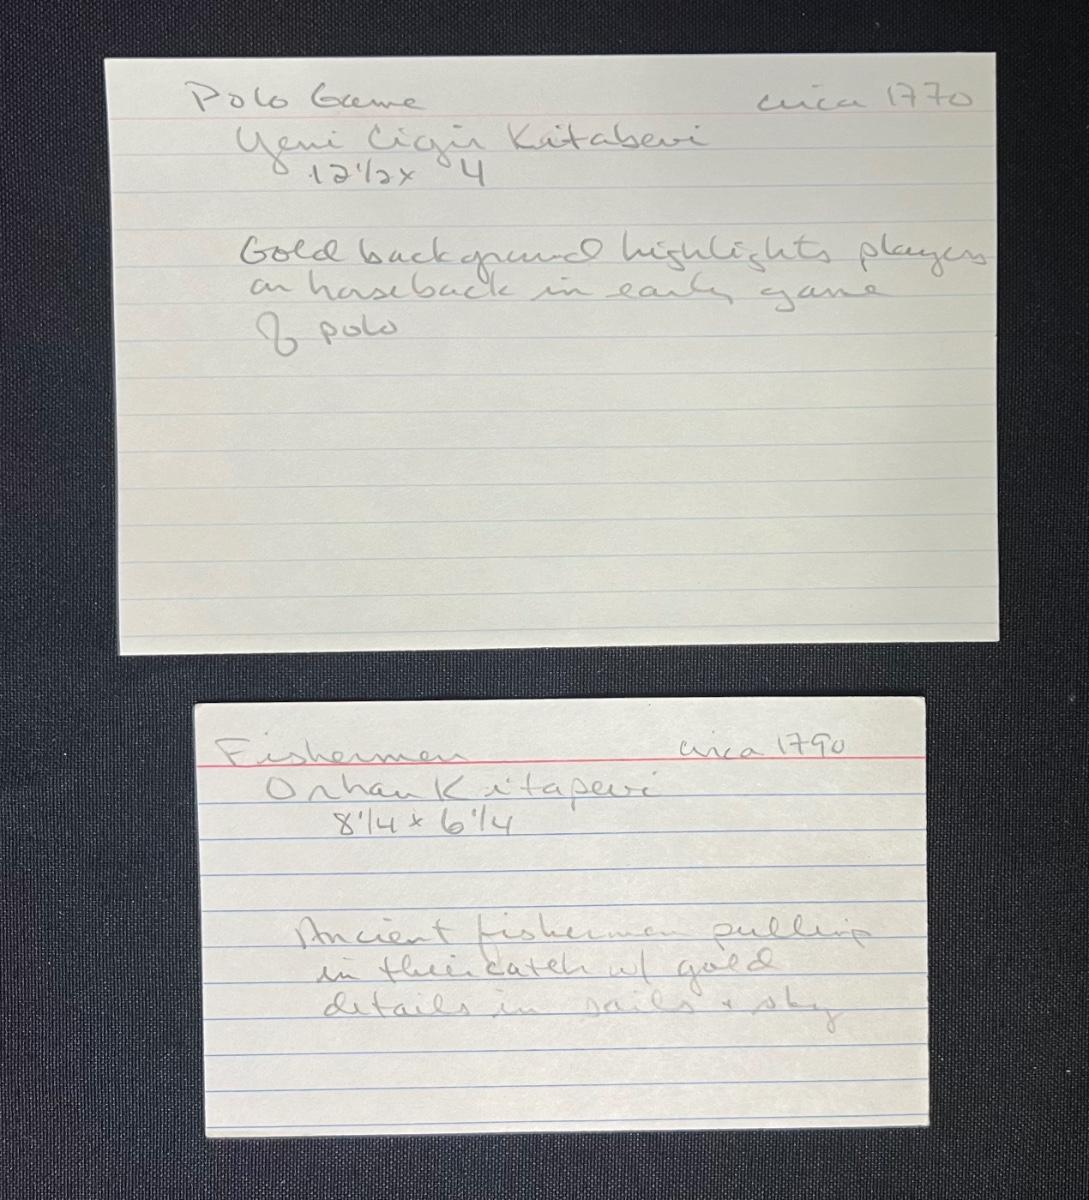 Polo Game circa 1770
Yeni Cigir Kitabevi
12 1/2 x 4
Gold background highlights players
on horseback in early game
of polo
Fishermen circa 1790
Orhan Kitapevi
8 1/4 x 6 1/4
Ancient fishermen pulling
in their catch w/ gold
details in sails + sky